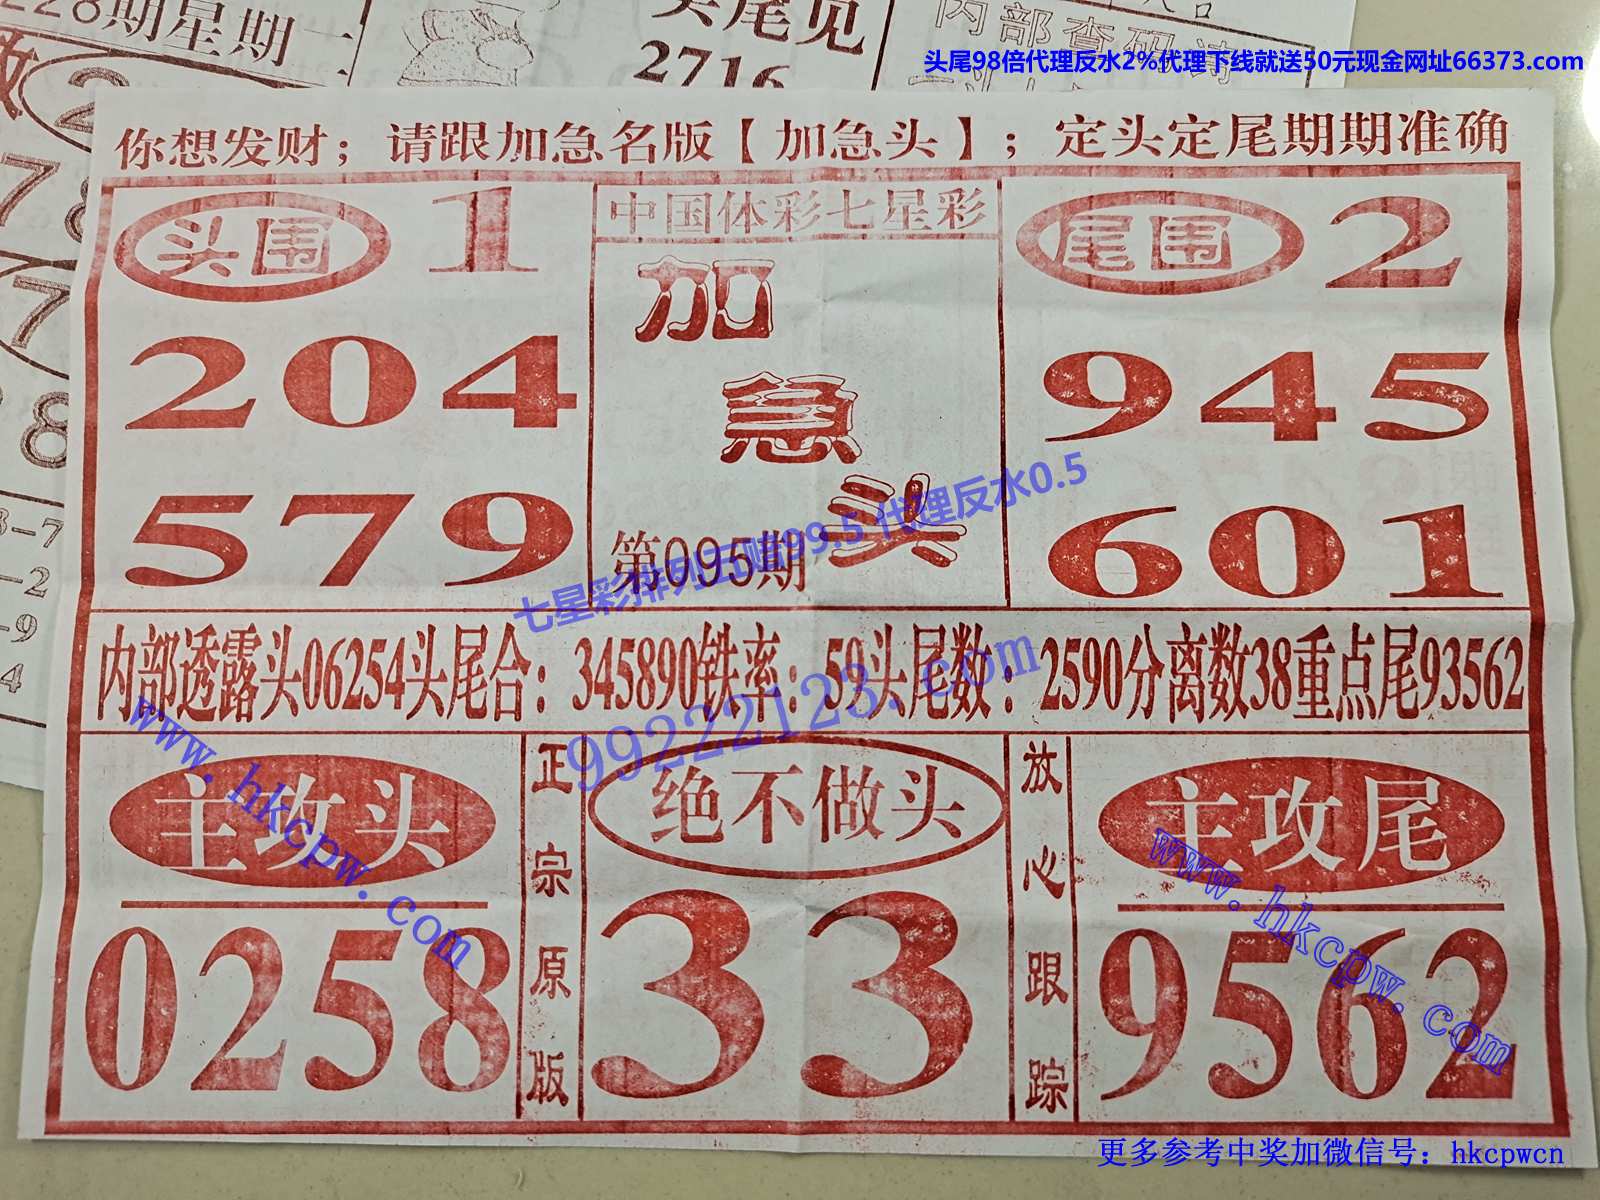 228期星期二
头尾见
2716
内部查码请
头尾98倍代理反水2%代理下线就送50元现金网址66373.com
你想发财；请跟加急名版【加急头】；定头定尾期期准确
头围 1
204
579
中国体彩七星彩
加
急
头
第095期
尾围 2
945
601
七星彩排列五赔99.5 代理反水0.5
内部透露头06254头尾合：345890铁率：59头尾数：2590分离数38重点尾93562
99222123.com
www.hkcpw.com
主攻头
0258
正宗原版
绝不做头
33
放心跟踪
主攻尾
9562
www.hkcpw.com
更多参考中奖加微信号：hkcpwcn